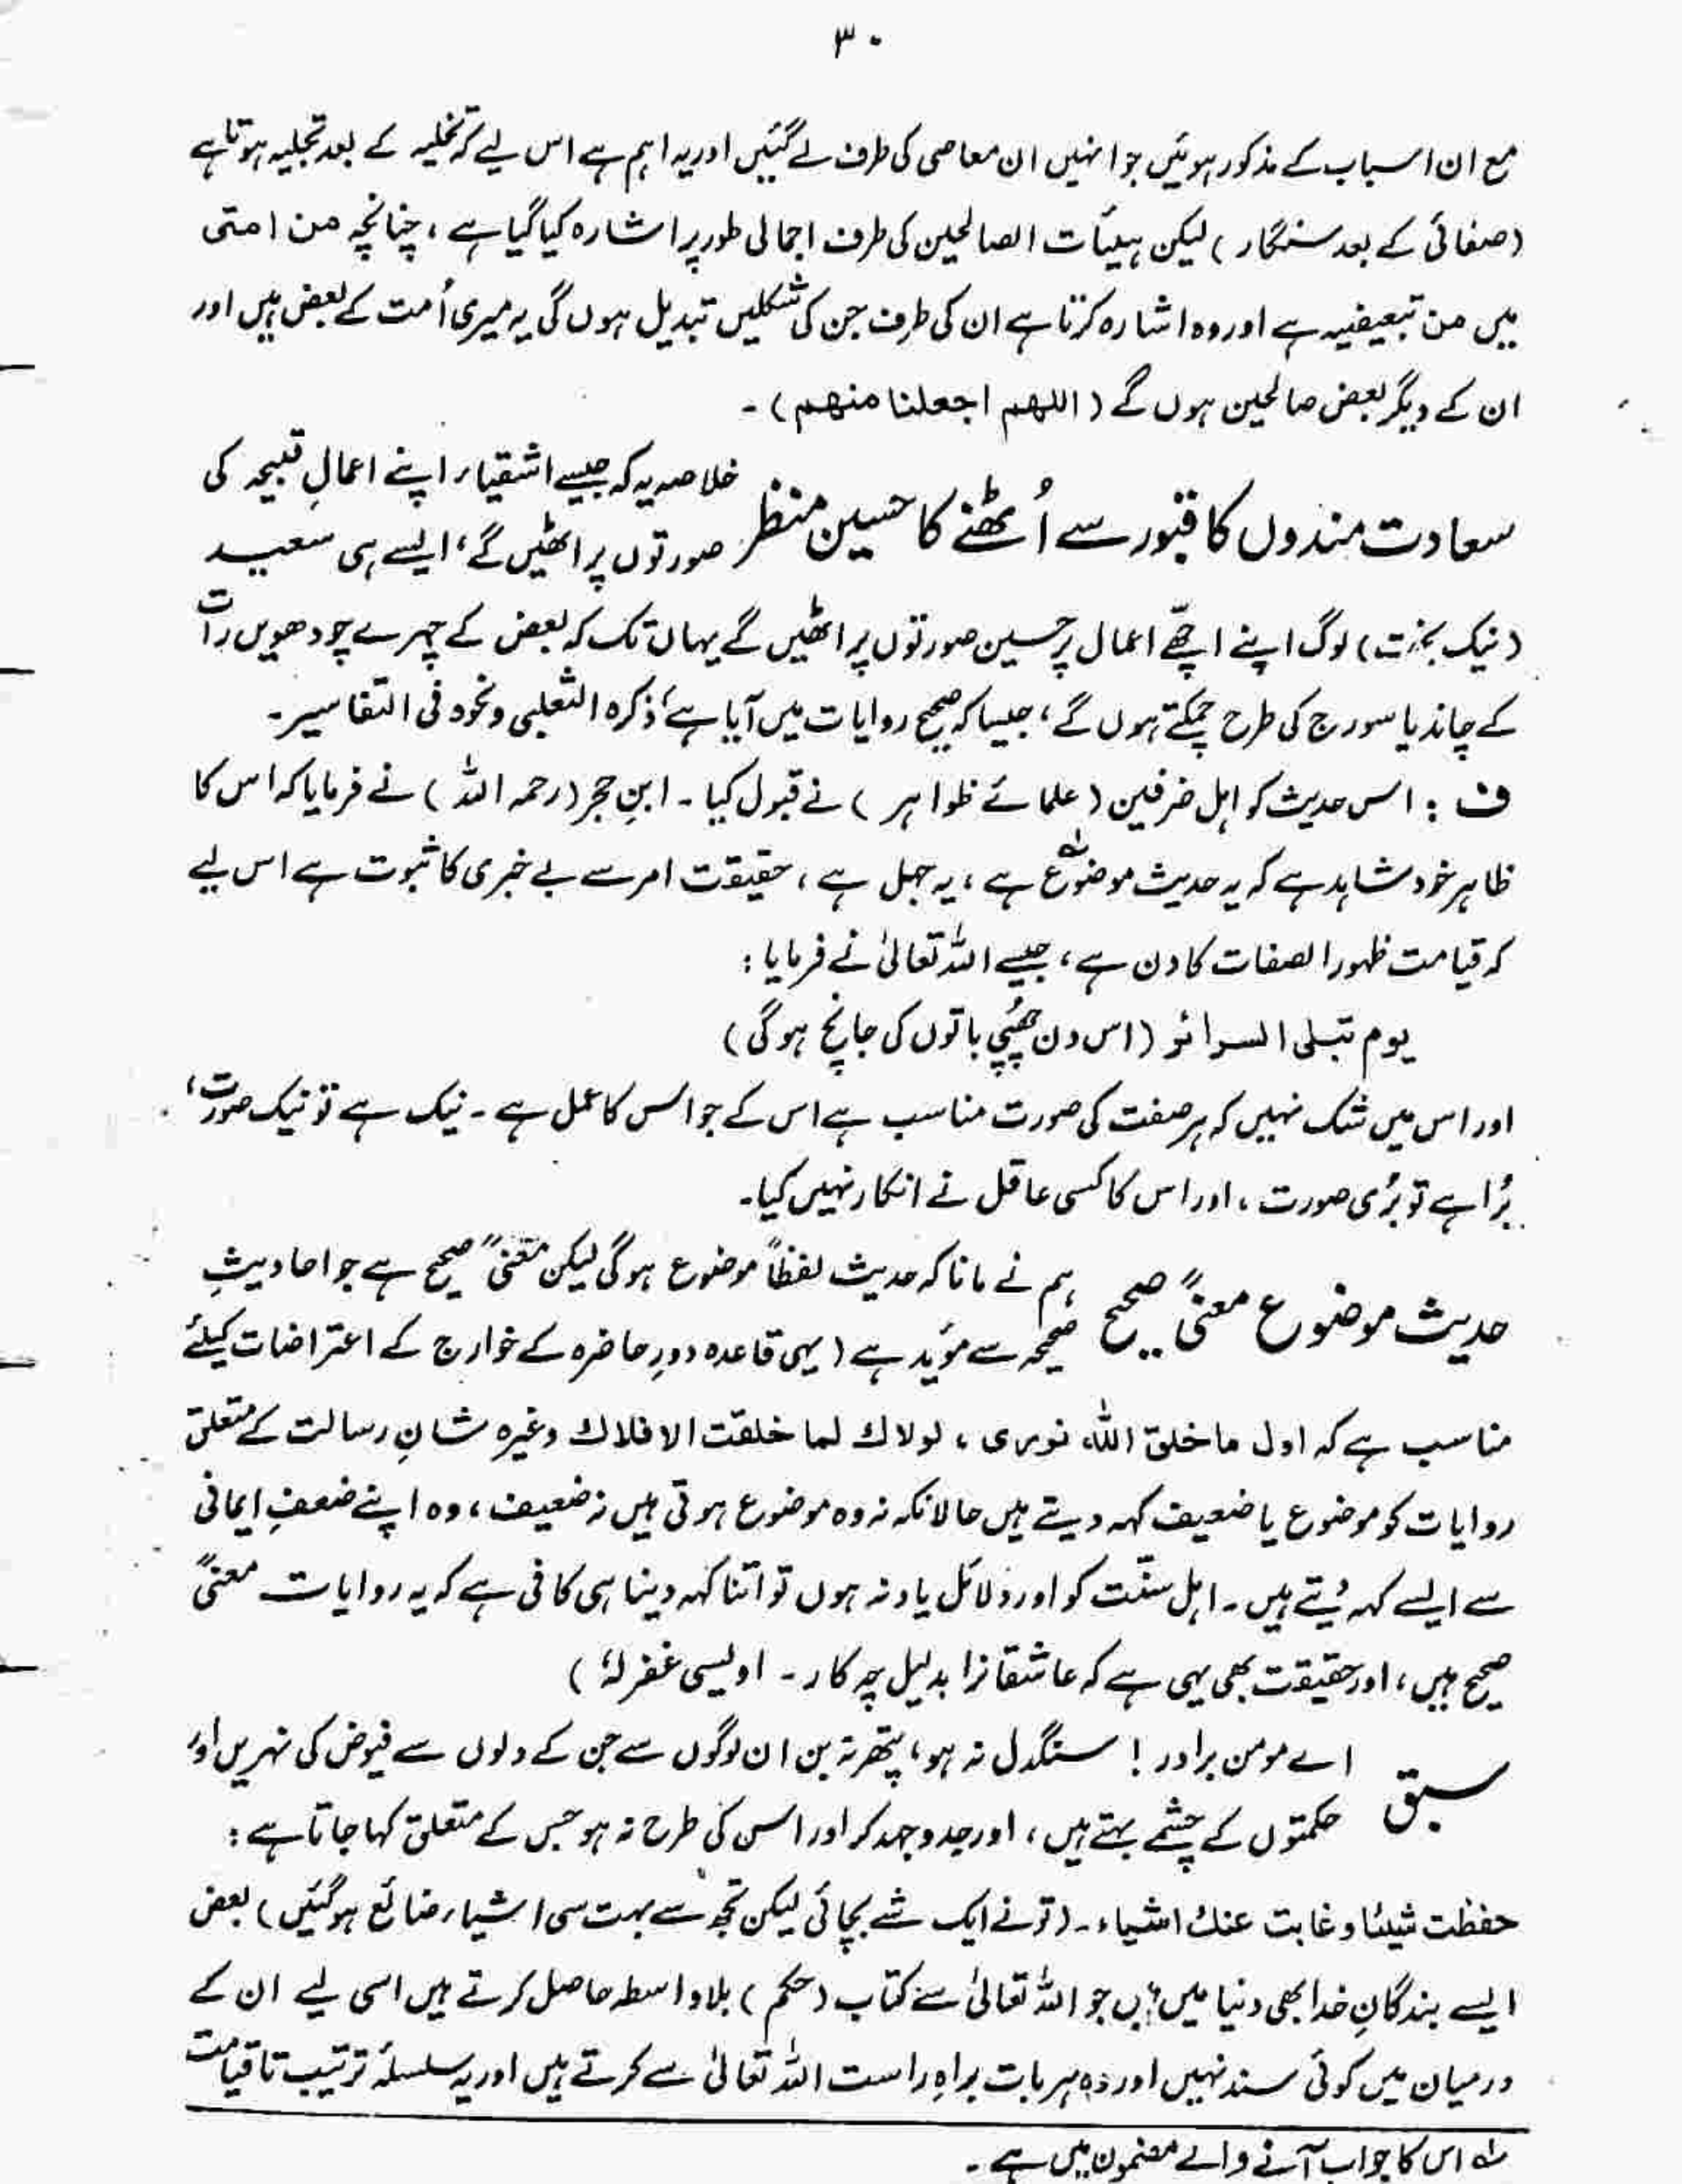 ۳۰
مع ان اسباب کے مذکور ہوئیں جو انہیں ان معاصی کی طرف لے گئیں اور یہ اہم ہے اس لیے کہ تخلیہ کے بعد تجلیہ ہوتا ہے
(صفائی کے بعد سنگار) لیکن ہیئات الصالحین کی طرف اجمالی طور پر اشارہ کیا گیا ہے ، چنانچہ من امتی
میں من تبعیضیہ ہے اور وہ اشارہ کرتا ہے ان کی طرف جن کی شکلیں تبدیل ہوں گی یہ میری اُمت کے بعض ہیں اور
ان کے دیگر بعض صالحین ہوں گے (اللهم اجعلنا منهم) ۔
سعادت مندوں کا قبور سے اُٹھنے کا حسین منظر خلاصہ یہ کہ جیسے اشقیاء اپنے اعمالِ قبیحہ کی
صورتوں پر اٹھیں گے ، ایسے ہی سعید
(نیک بخت) لوگ اپنے اچھے اعمال پر حسین صورتوں پر اٹھیں گے یہاں تک کہ بعض کے چہرے چودھویں رات
کے چاند یا سورج کی طرح چمکتے ہوں گے ، جیسا کہ صحیح روایات میں آیا ہے ذکرہ الثعلبی ونحوہ فی التفاسیر ۔
ف : اس حدیث کو اہل ضرفین (علمائے ظواہر) نے قبول کیا ۔ ابنِ حجر (رحمہ اللہ) نے فرمایا کہ اس کا
ظاہر خود شاہد ہے کہ یہ حدیث موضوع لہ ہے ، یہ جہل ہے ، حقیقت امر سے بے خبری کا ثبوت ہے اس لیے
کہ قیامت ظہور الصفات کا دن ہے ، جیسے اللہ تعالیٰ نے فرمایا :
یوم تبلی السرائر (اس دن چھپی باتوں کی جانچ ہو گی)
اور اس میں شک نہیں کہ ہر صفت کی صورت مناسب ہے اس کے جو اس کا عمل ہے ۔ نیک ہے تو نیک صورت ،
بُرا ہے تو بُری صورت ، اور اس کا کسی عاقل نے انکار نہیں کیا ۔
حدیث موضوع معنیً صحیح ہم نے مانا کہ حدیث لفظاً موضوع ہو گی لیکن معنیً صحیح ہے جو احادیثِ
صحیحہ سے مؤید ہے (یہی قاعدہ دورِ حاضرہ کے خوارج کے اعتراضات کیلئے
مناسب ہے کہ اول ما خلق اللہ نوری ، لولاك لما خلقت الافلاك وغیرہ شانِ رسالت کے متعلق
روایات کو موضوع یا ضعیف کہہ دیتے ہیں حالانکہ نہ وہ موضوع ہوتی ہیں نہ ضعیف ، وہ اپنے ضعفِ ایمانی
سے ایسے کہہ دیتے ہیں ۔ اہل سنّت کو اور دلائل یاد نہ ہوں تو اتنا کہہ دینا ہی کافی ہے کہ یہ روایات معنیً
صحیح ہیں ، اور حقیقت بھی یہی ہے کہ عاشقانرا بدلیل چہ کار ۔ اویسی غفرلہٗ)
سبق اے مومن برادر ! سنگدل نہ ہو ، پتھر نہ بن ان لوگوں سے جن کے دلوں سے فیوض کی نہریں اور
حکمتوں کے چشمے بہتے ہیں ، اور جدوجہد کر اور اس کی طرح نہ ہو جس کے متعلق کہا جاتا ہے :
حفظت شیئا وغابت عنك اشیاء ۔ (تو نے ایک شے بچائی لیکن تجھ سے بہت سی اشیاء ضائع ہو گئیں) بعض
ایسے بندگانِ خدا بھی دنیا میں ہیں جو اللہ تعالیٰ سے کتاب (حکم) بلاواسطہ حاصل کرتے ہیں اسی لیے ان کے
درمیان میں کوئی سند نہیں اور وہ ہر بات براہِ راست اللہ تعالیٰ سے کرتے ہیں اور یہ سلسلۂ ترتیب تا قیامت
لہ اس کا جواب آنے والے مضمون میں ہے ۔